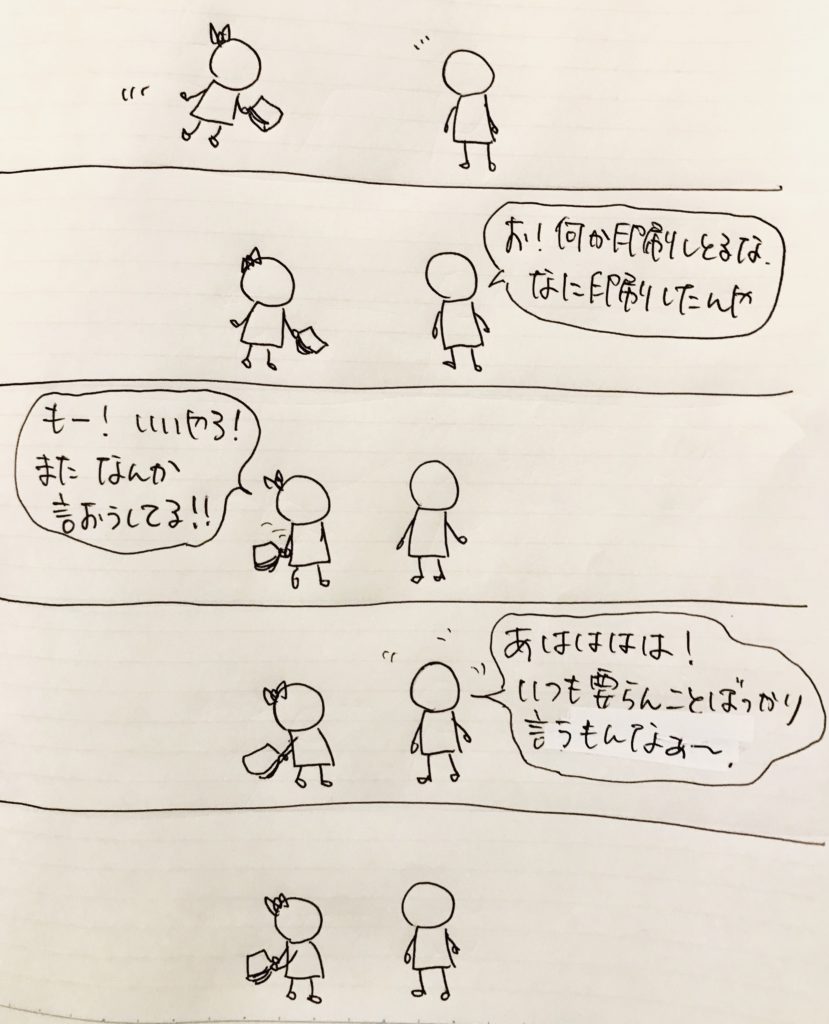 お！何か印刷しとるな、
なに印刷したんや
もー！いいやろ！
また なんか
言おうしてる!!
あはははは！
いつも要らんことばっかり
言うもんなぁ〜、